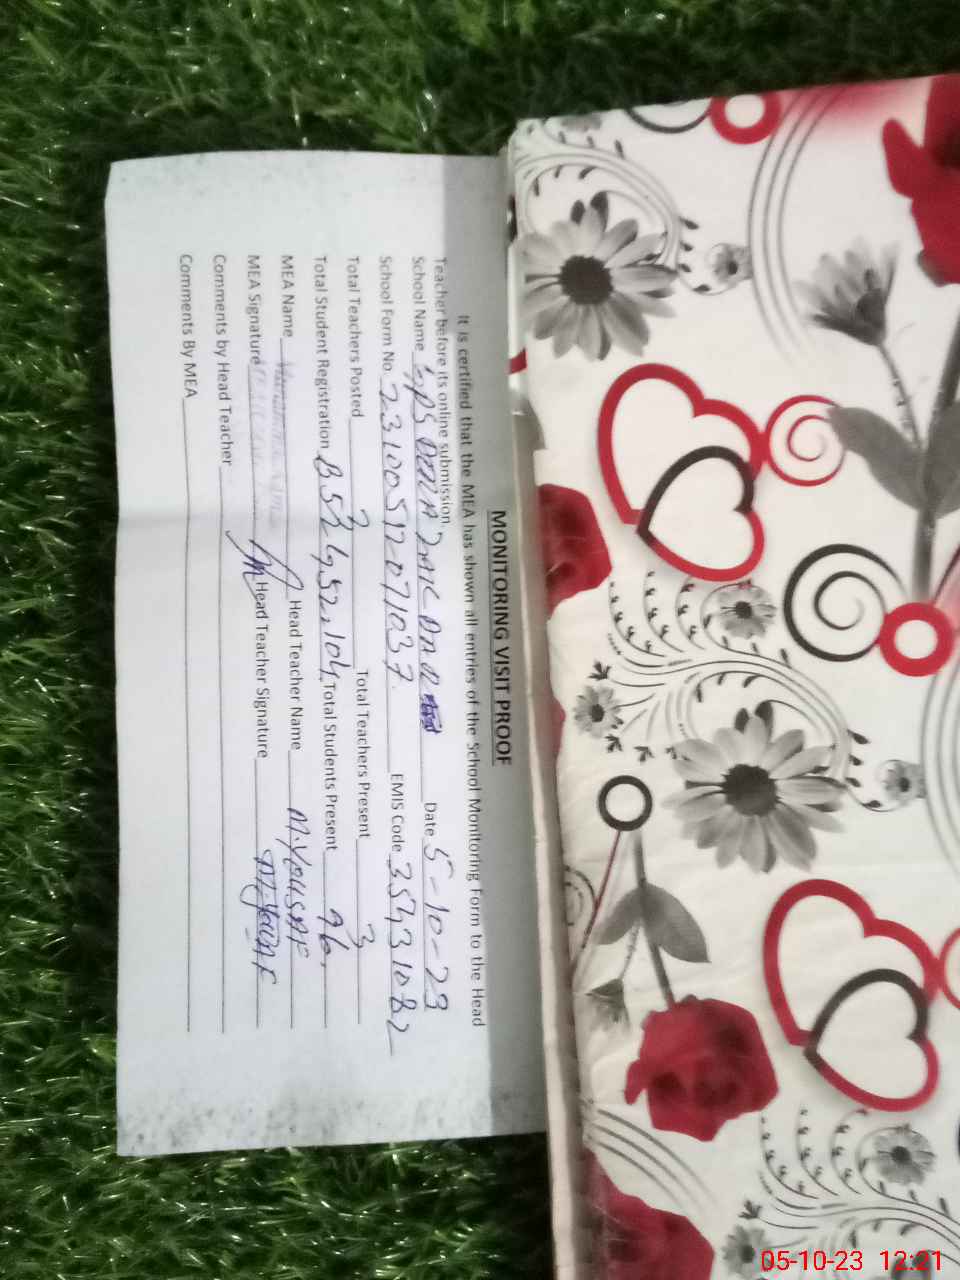 MONITORING VISIT PROOF
It is certified that the MEA has shown all entries of the School Monitoring Form to the Head
Teacher before its online submission.
School Name GPS Date 5-10-23
School Form No. 231005172071037. EMIS Code 35431082
Total Teachers Posted 3 Total Teachers Present 3
Total Student Registration B 52 G 52, 104. Total Students Present 96,
MEA Name Head Teacher Name M. YOUSAF
MEA Signature Head Teacher Signature M. YOUSAF
Comments by Head Teacher
Comments By MEA
05-10-23 12:21